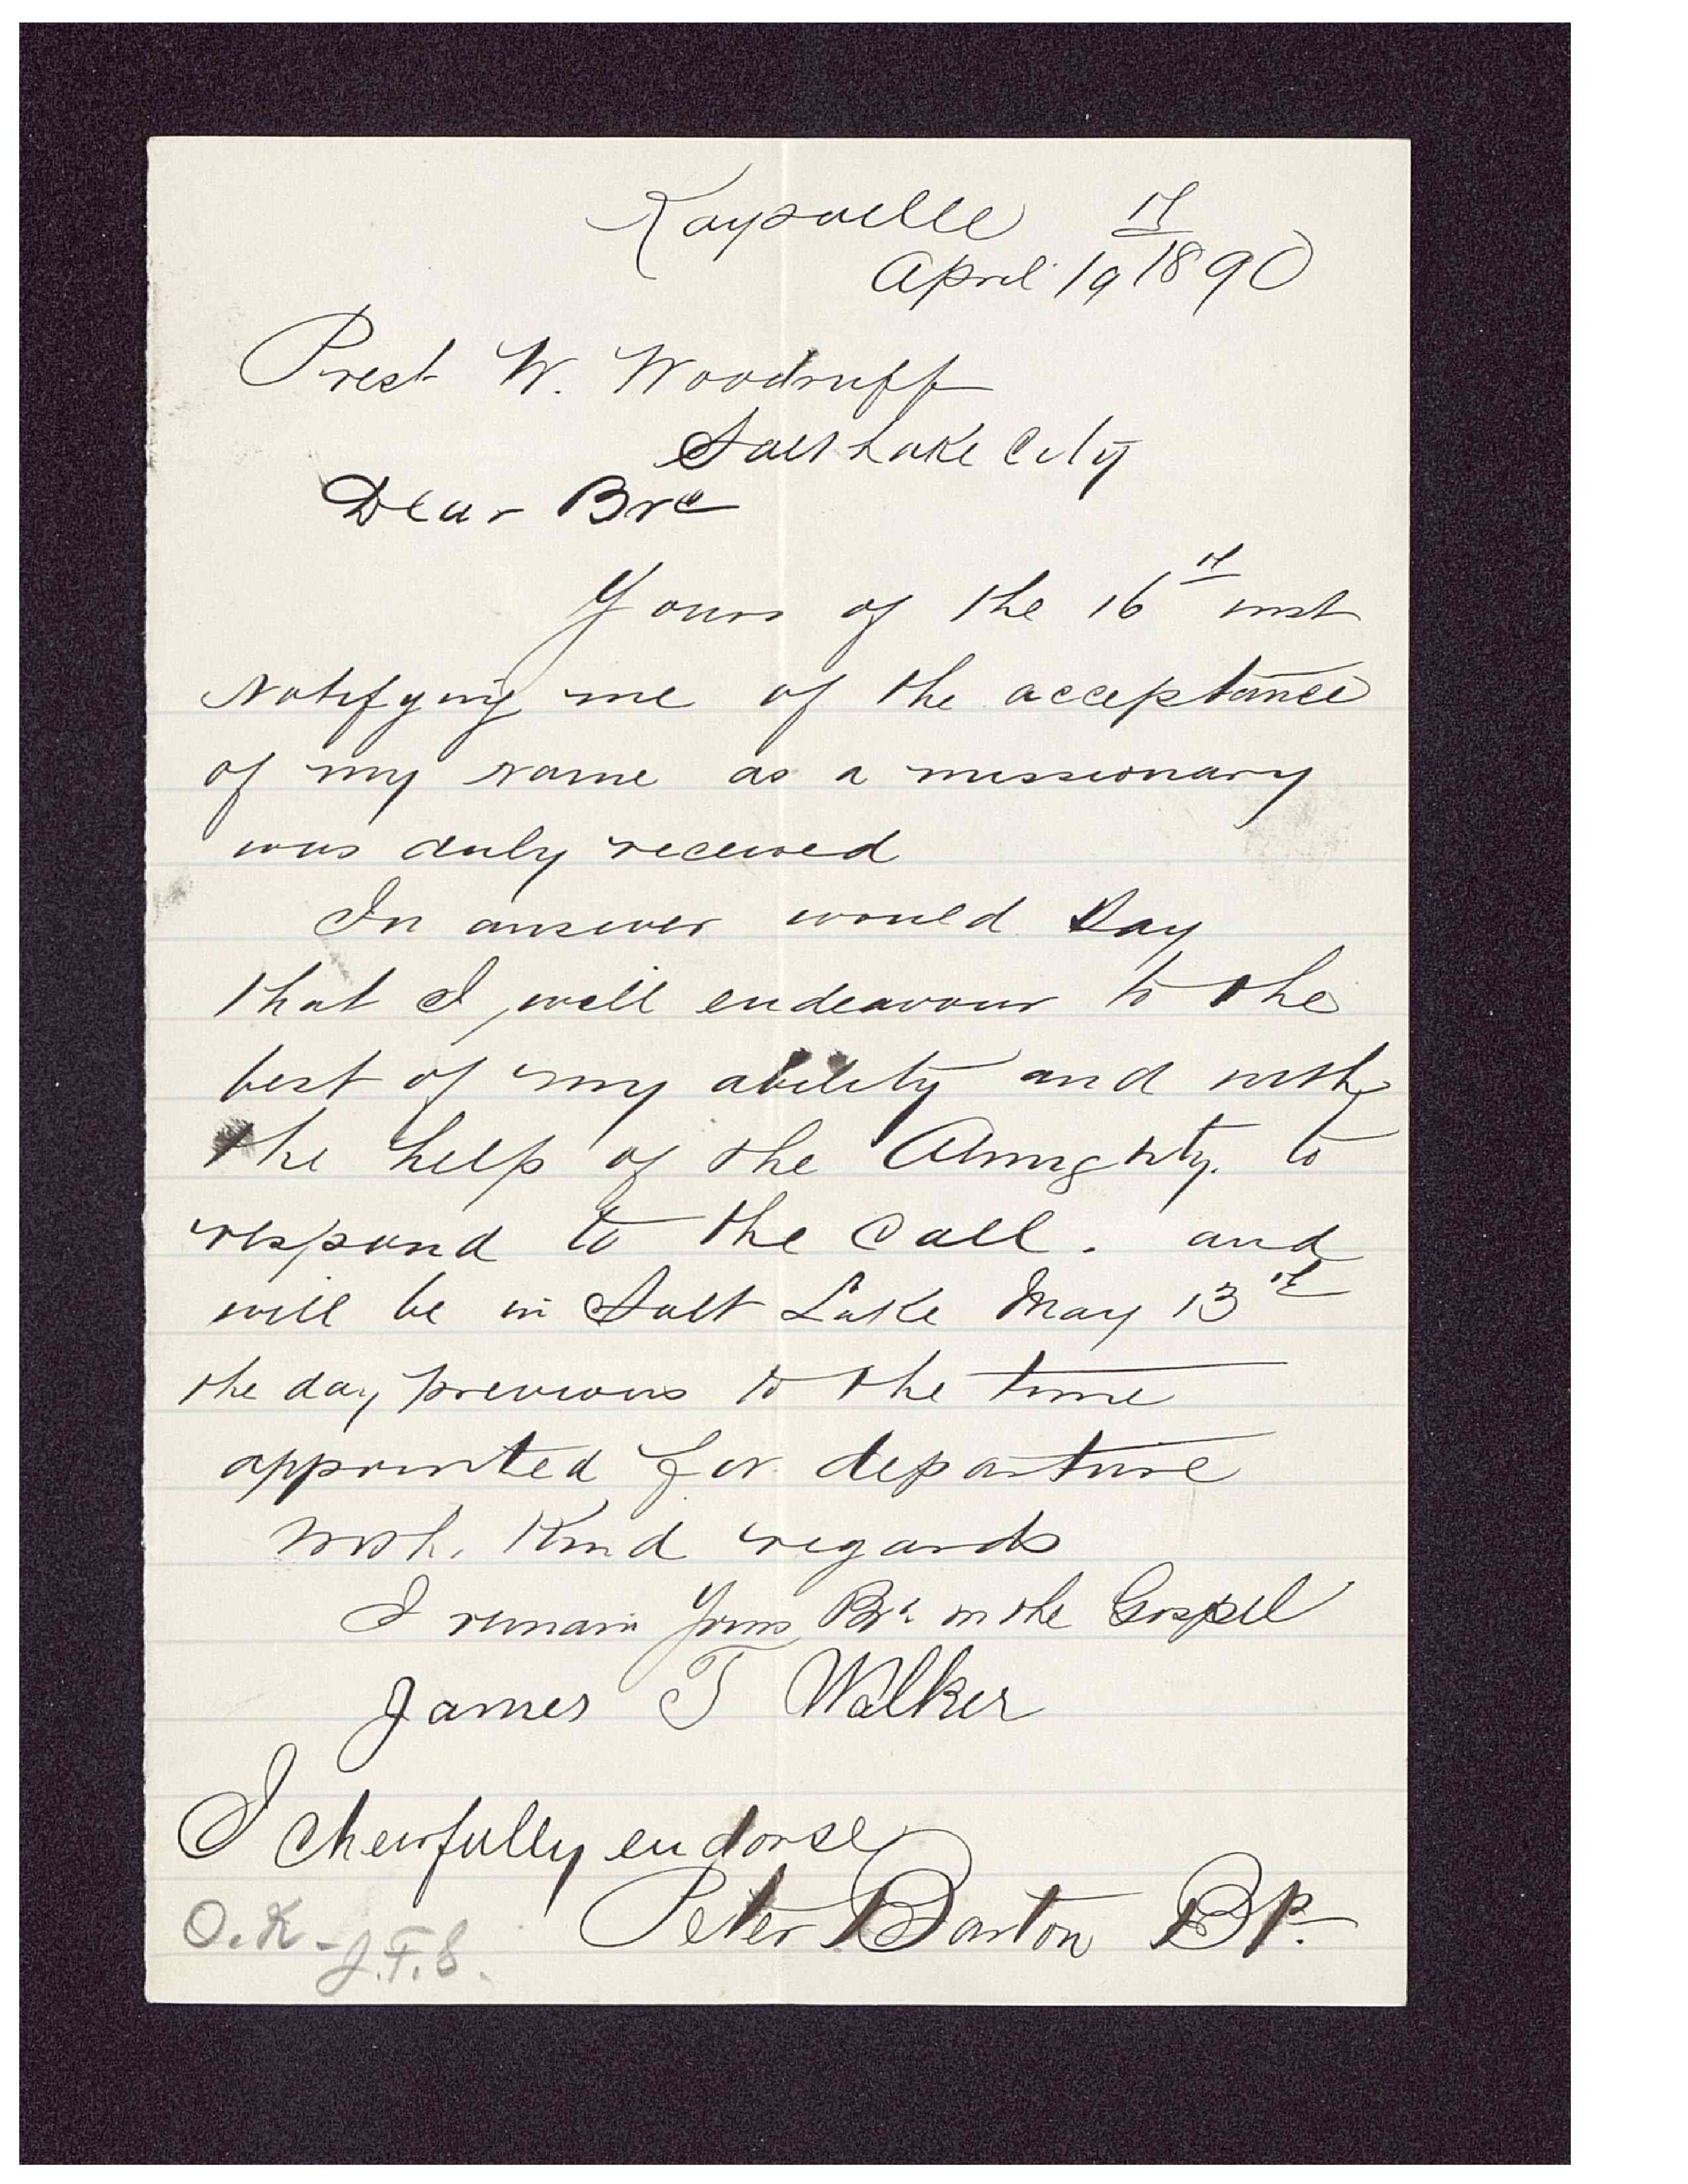 Kaysville
April 19th 1890
Prest W. Woodruff
Salt Lake City
Dear Bro
Yours of the 16th inst
Notifying me of the acceptance
of my name as a missionary
was duly received
In answer would say
that I will endeavour to the
best of my ability and with
the help of the Almighty. to
respond to the call. and
will be in Salt Lake May 13th
the day previous to the time
appointed for departure
with kind regards
I remain Yours Bro. in the Gospel
James T Walker
I cheerfully endorse
Peter Barton Bp.
O.K - J.F.S.